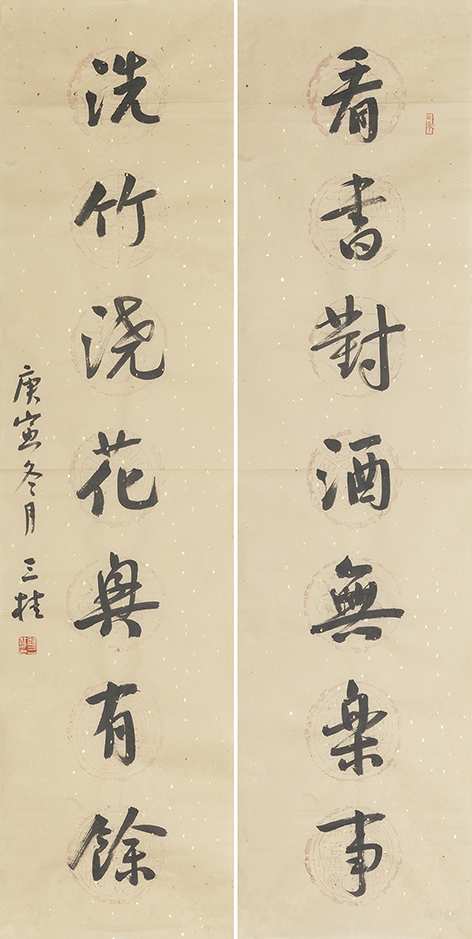 看書對酒無樂事
洗竹浇花興有餘
庚寅冬月 三桂